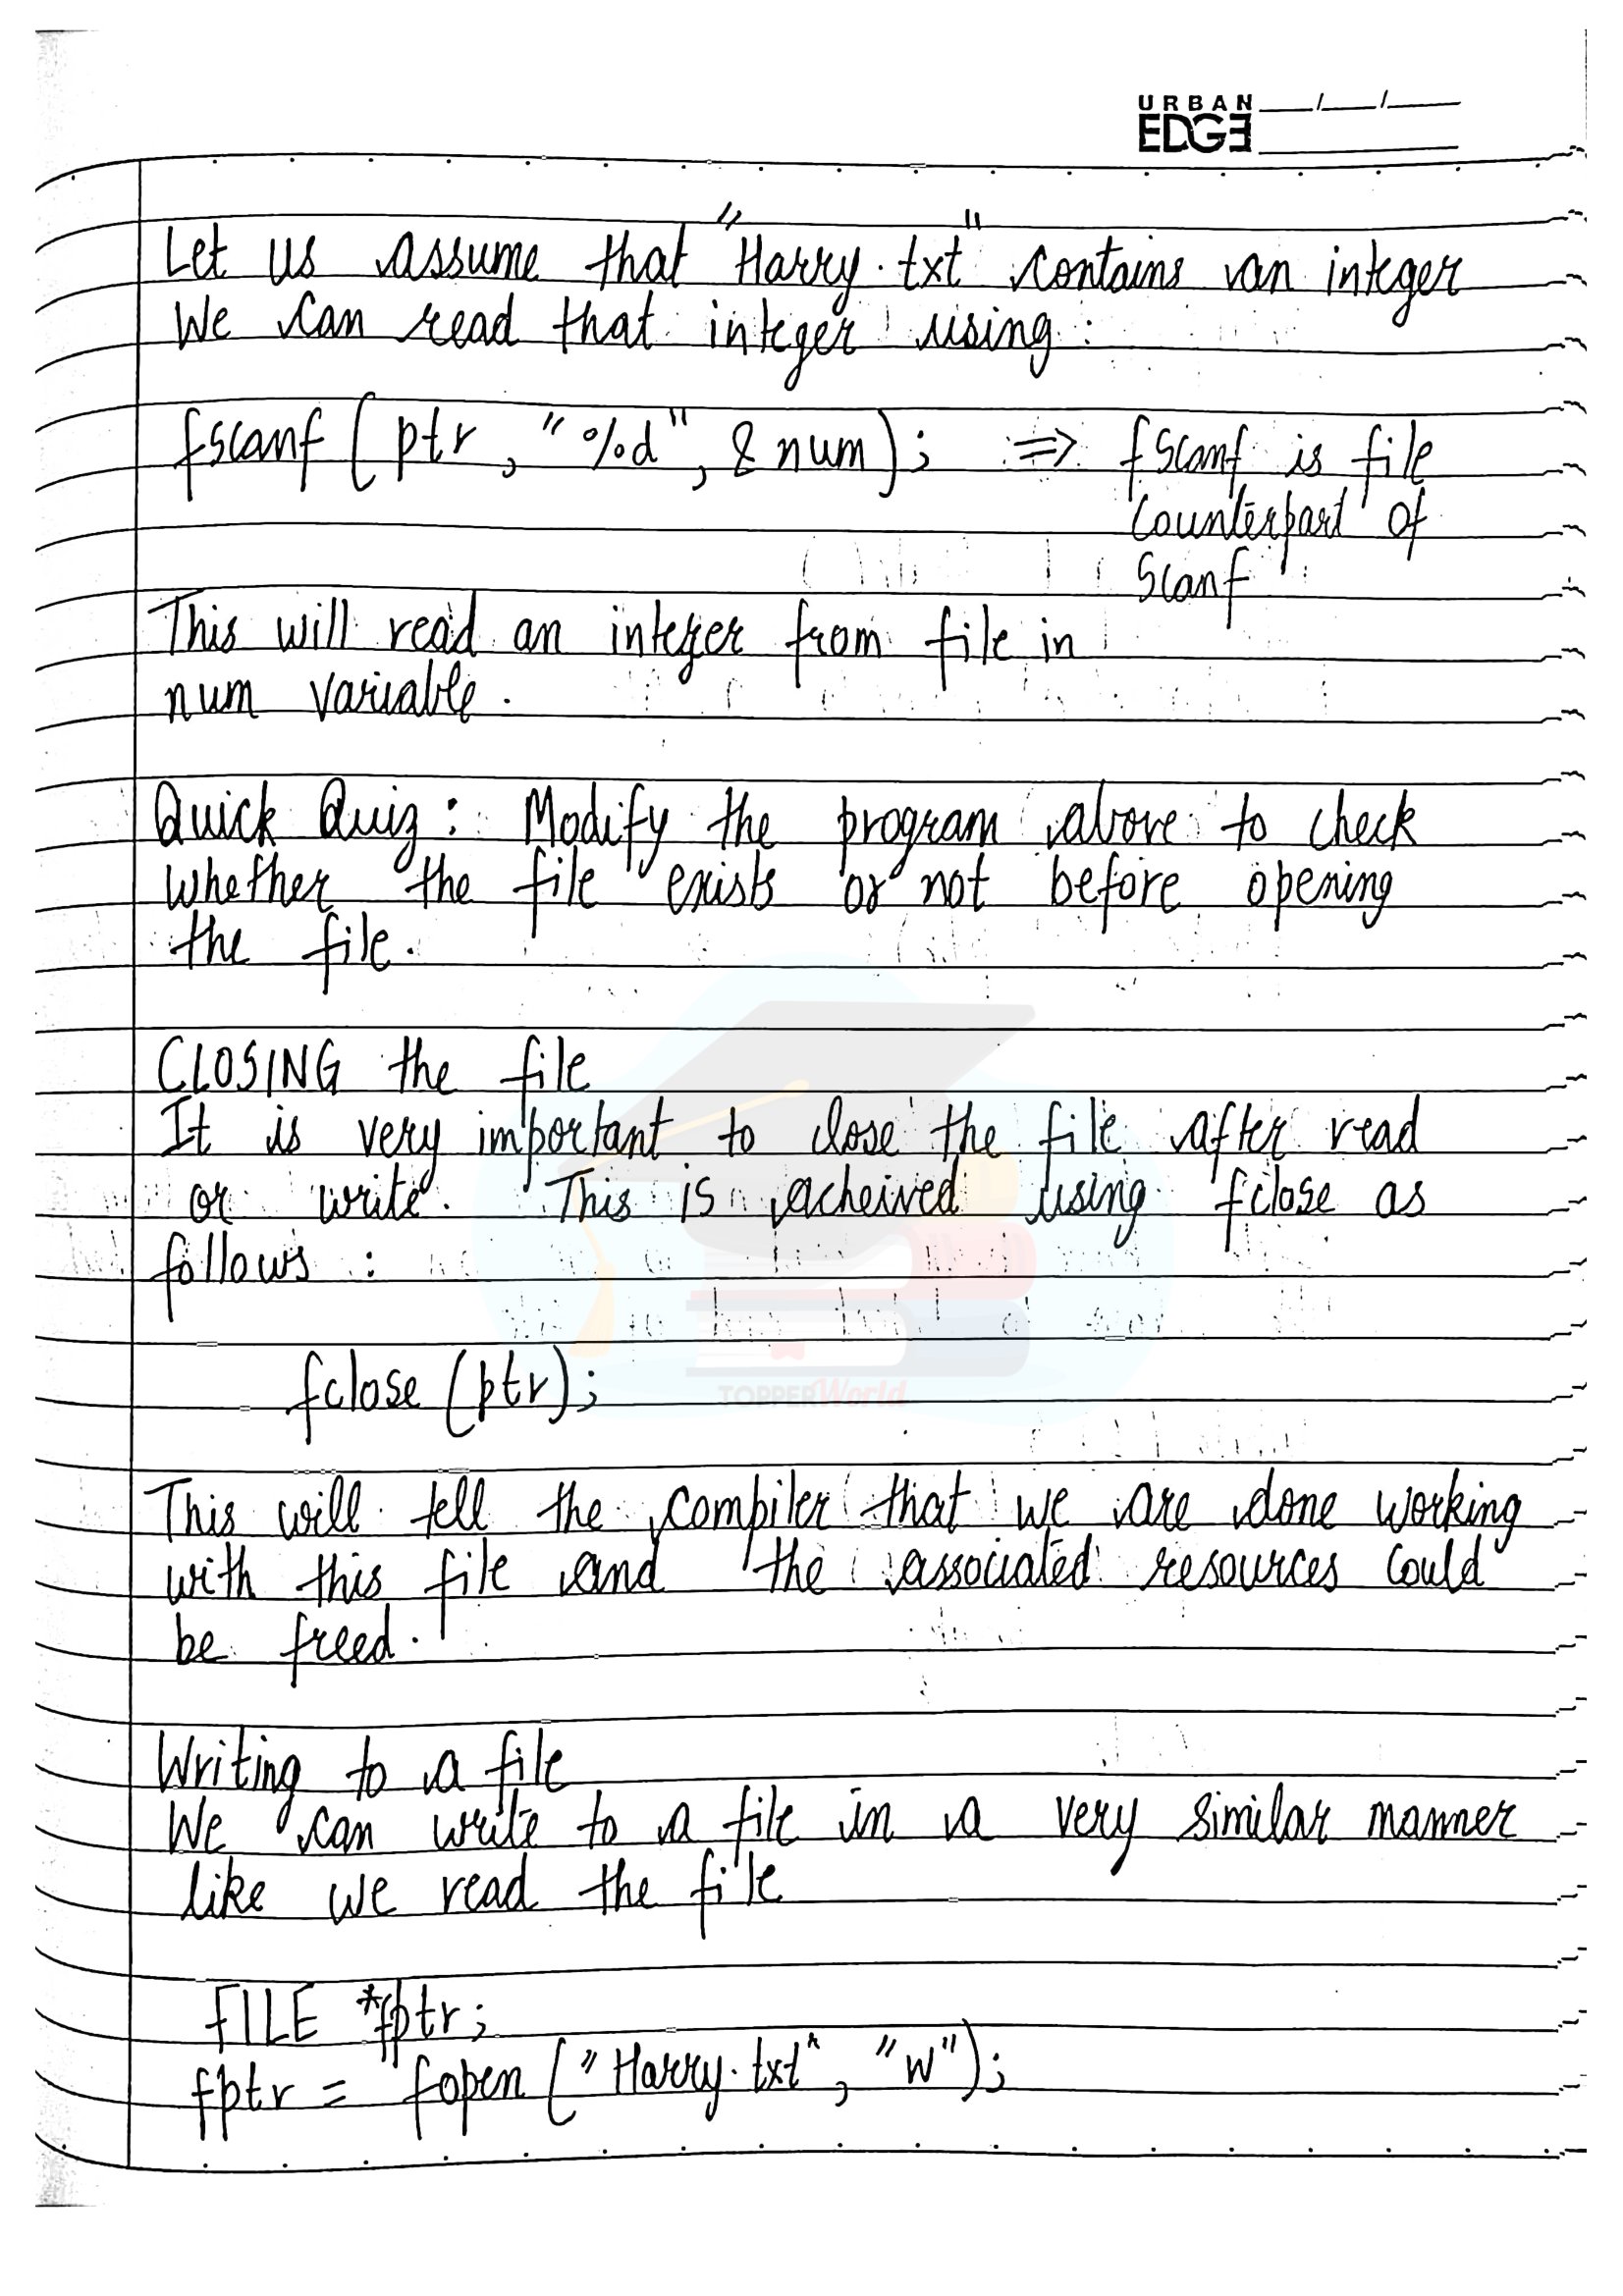 URBAN
EDGE
Let us assume that "Harry.txt" contains an integer
We can read that integer using :
fscanf (ptr, "%d", &num); => fscanf is file
counterpart of
scanf
This will read an integer from file in
num variable.
Quick Quiz: Modify the program above to check
whether the file exists or not before opening
the file.
CLOSING the file
It is very important to close the file after read
or write. This is acheived using fclose as
follows :
fclose (ptr);
TOPPERWorld
This will tell the compiler that we are done working
with this file and the associated resources could
be freed.
Writing to a file
We can write to a file in a very similar manner
like we read the file
FILE *fptr;
fptr = fopen ("Harry.txt", "w");